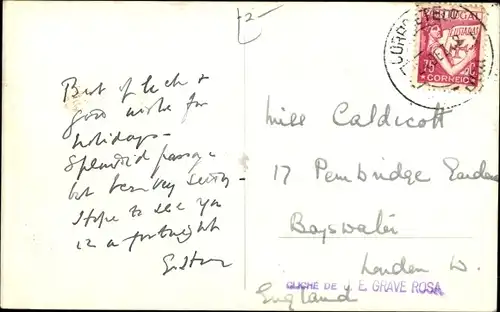 2-
Best of luck &
good wishes for
holidays -
Splendid passage
but
I hope to see you
in a fortnight
Miss Caldicott
17 Pembridge Gardens
Bayswater
London W.
England
PORTUGAL
75 C.
CORREIO
CLICHÉ DE J. E. GRAVE ROSA